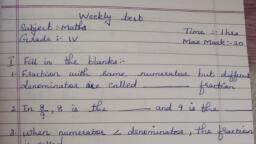 Weekly test
Subject :- Maths Time :- 1 hrs
Grade :- IV Max Mark :- 20
I Fill in the blanks :-
1. Fraction with same numerator but different
denominator are called ______ fraction
2. In 8/9, 8 is the ______ and 9 is the ____
3. When numerator < denominator, the fraction
is called